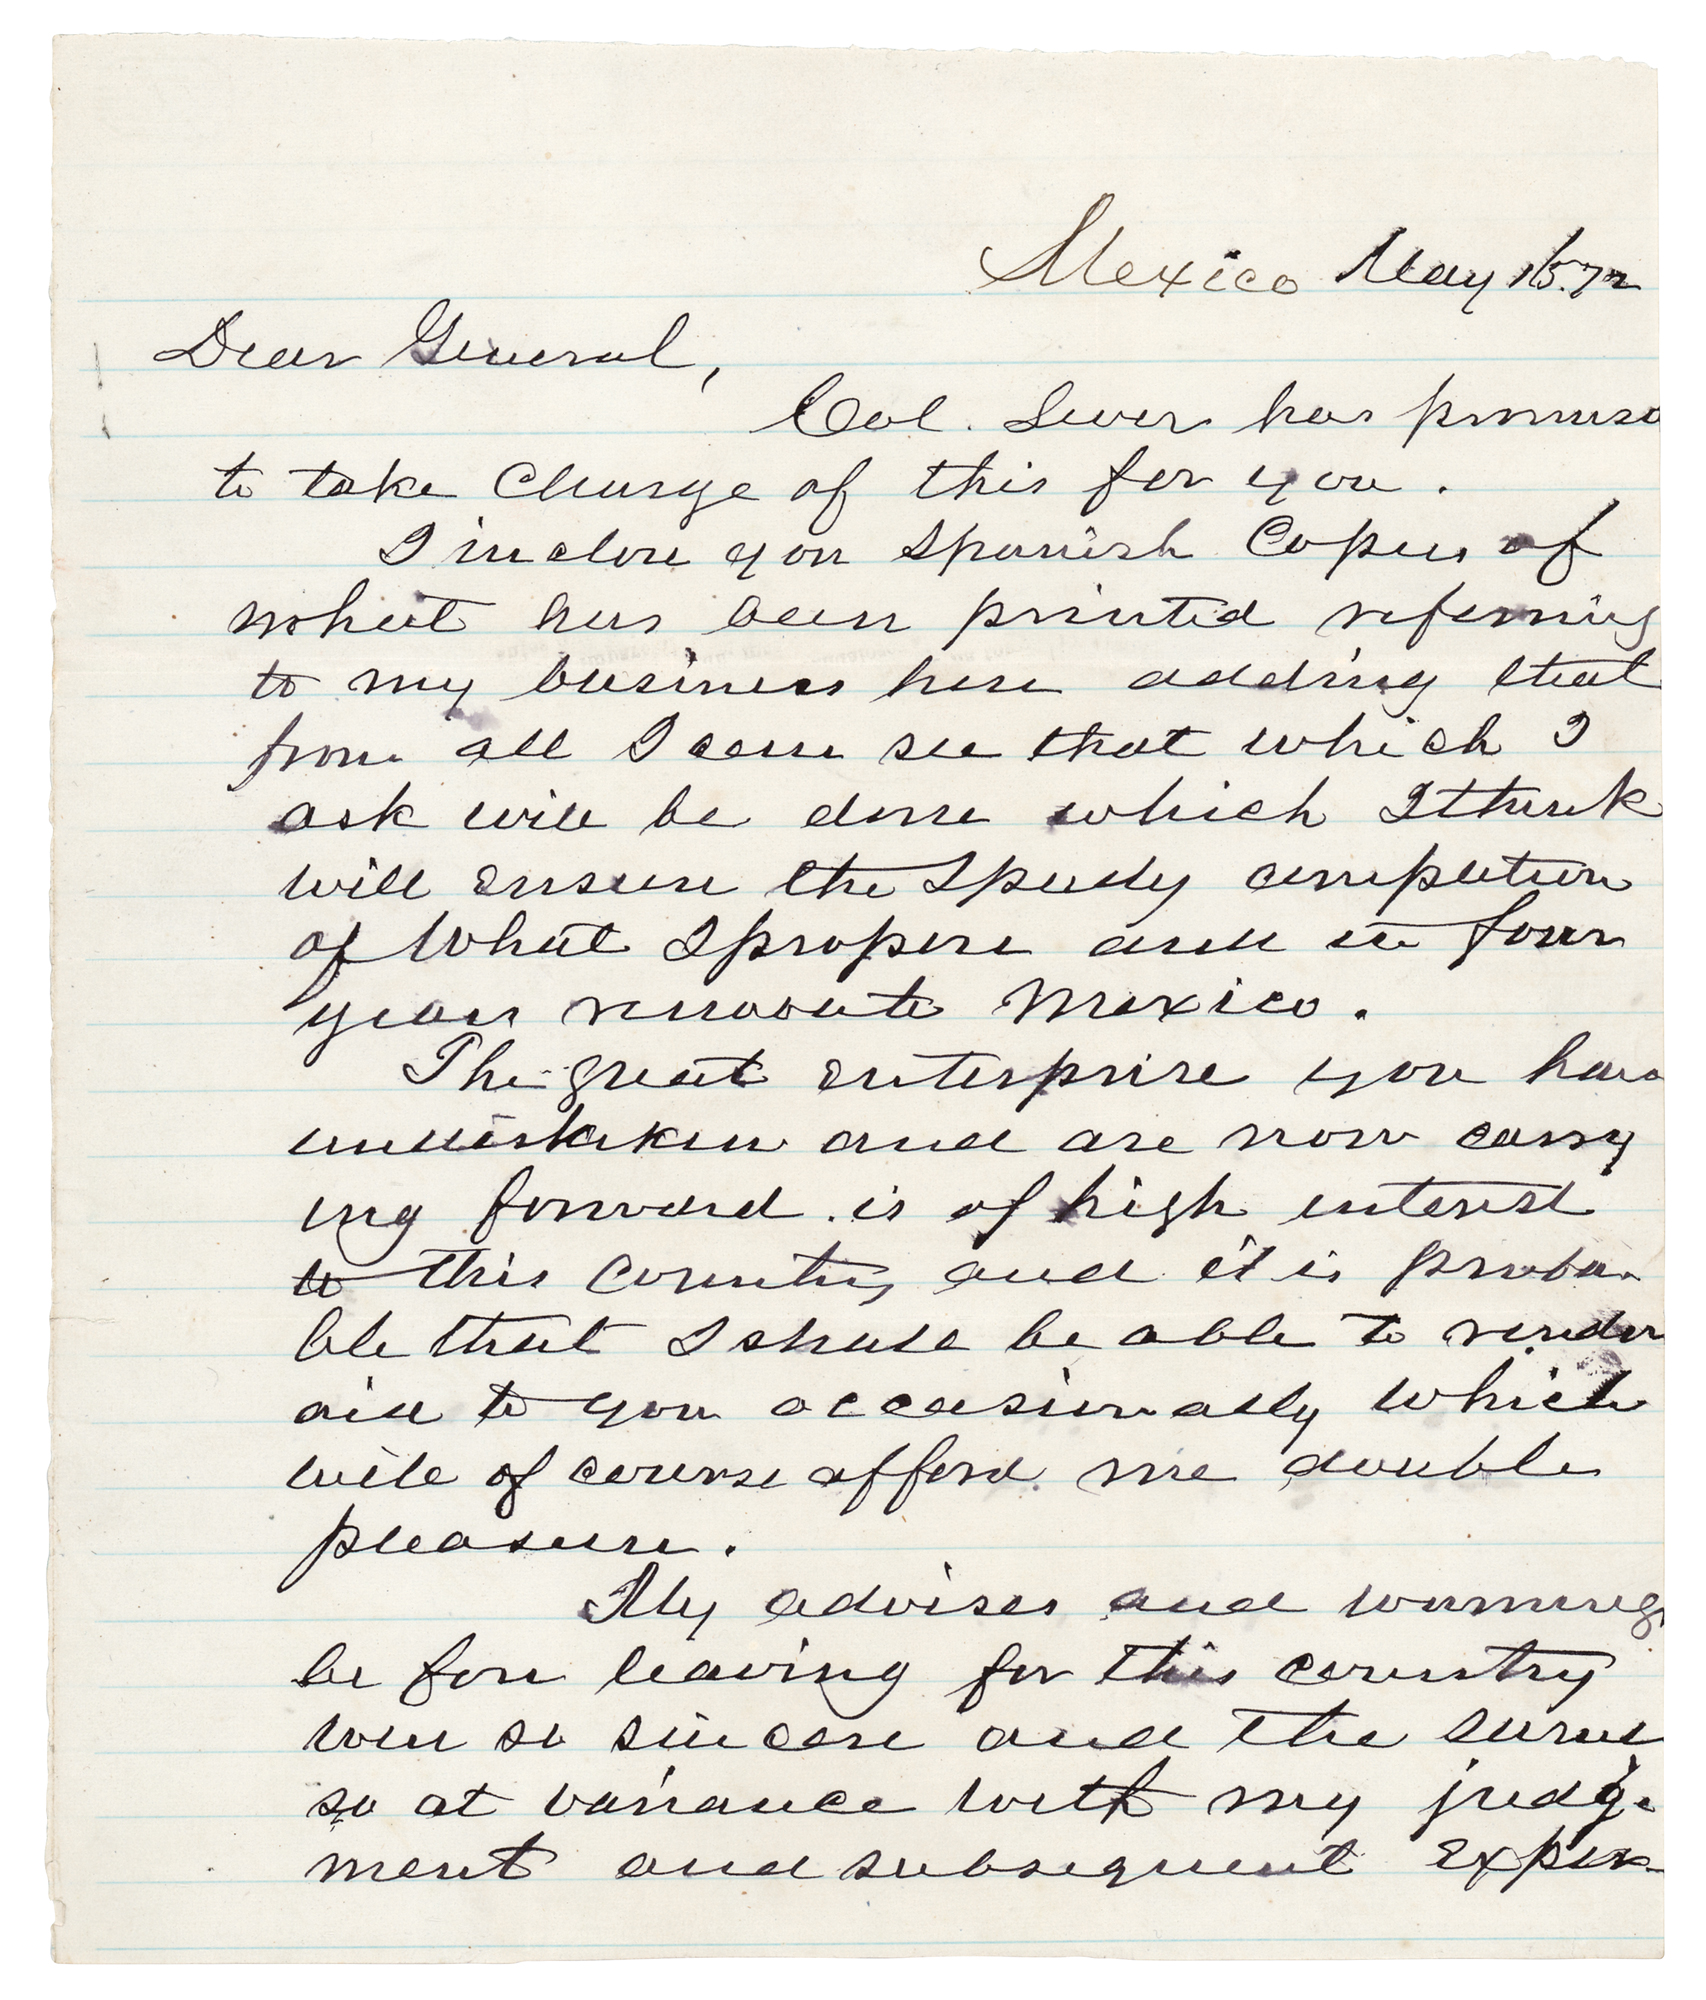 Mexico May 15. 72
Dear General,
Col. Sever has promised
to take Charge of this for you.
I inclose you Spanish Copies of
what has been printed referring
to my business here adding that
from all I can see that which I
ask will be done which I think
will ensure the Speedy completion
of What I propose and in four
years renovate Mexico.
The great enterprise you have
undertaken and are now carry
ing forward is of high interest
to this Country and it is proba-
ble that I shall be able to render
aid to you occasionally which
will of course afford me double
pleasure.
My advises and warnings
be fore leaving for this country
were so sincere and the same
so at variance with my judg-
ment and subsequent exper-